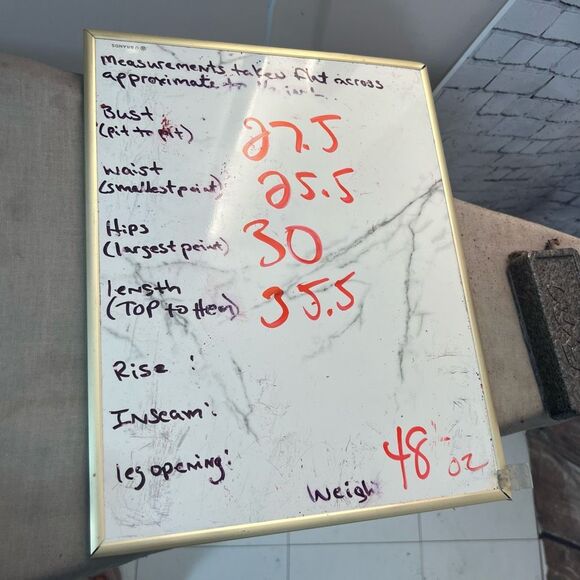 U BRANDS
measurements taken flat across
approximate to
Bust
(pit to pit)
27.5
waist
(smallest point)
25.5
Hips
(largest point)
30
length
(TOP to Hem)
35.5
Rise :
Inseam:
leg opening:
Weigh
48 oz